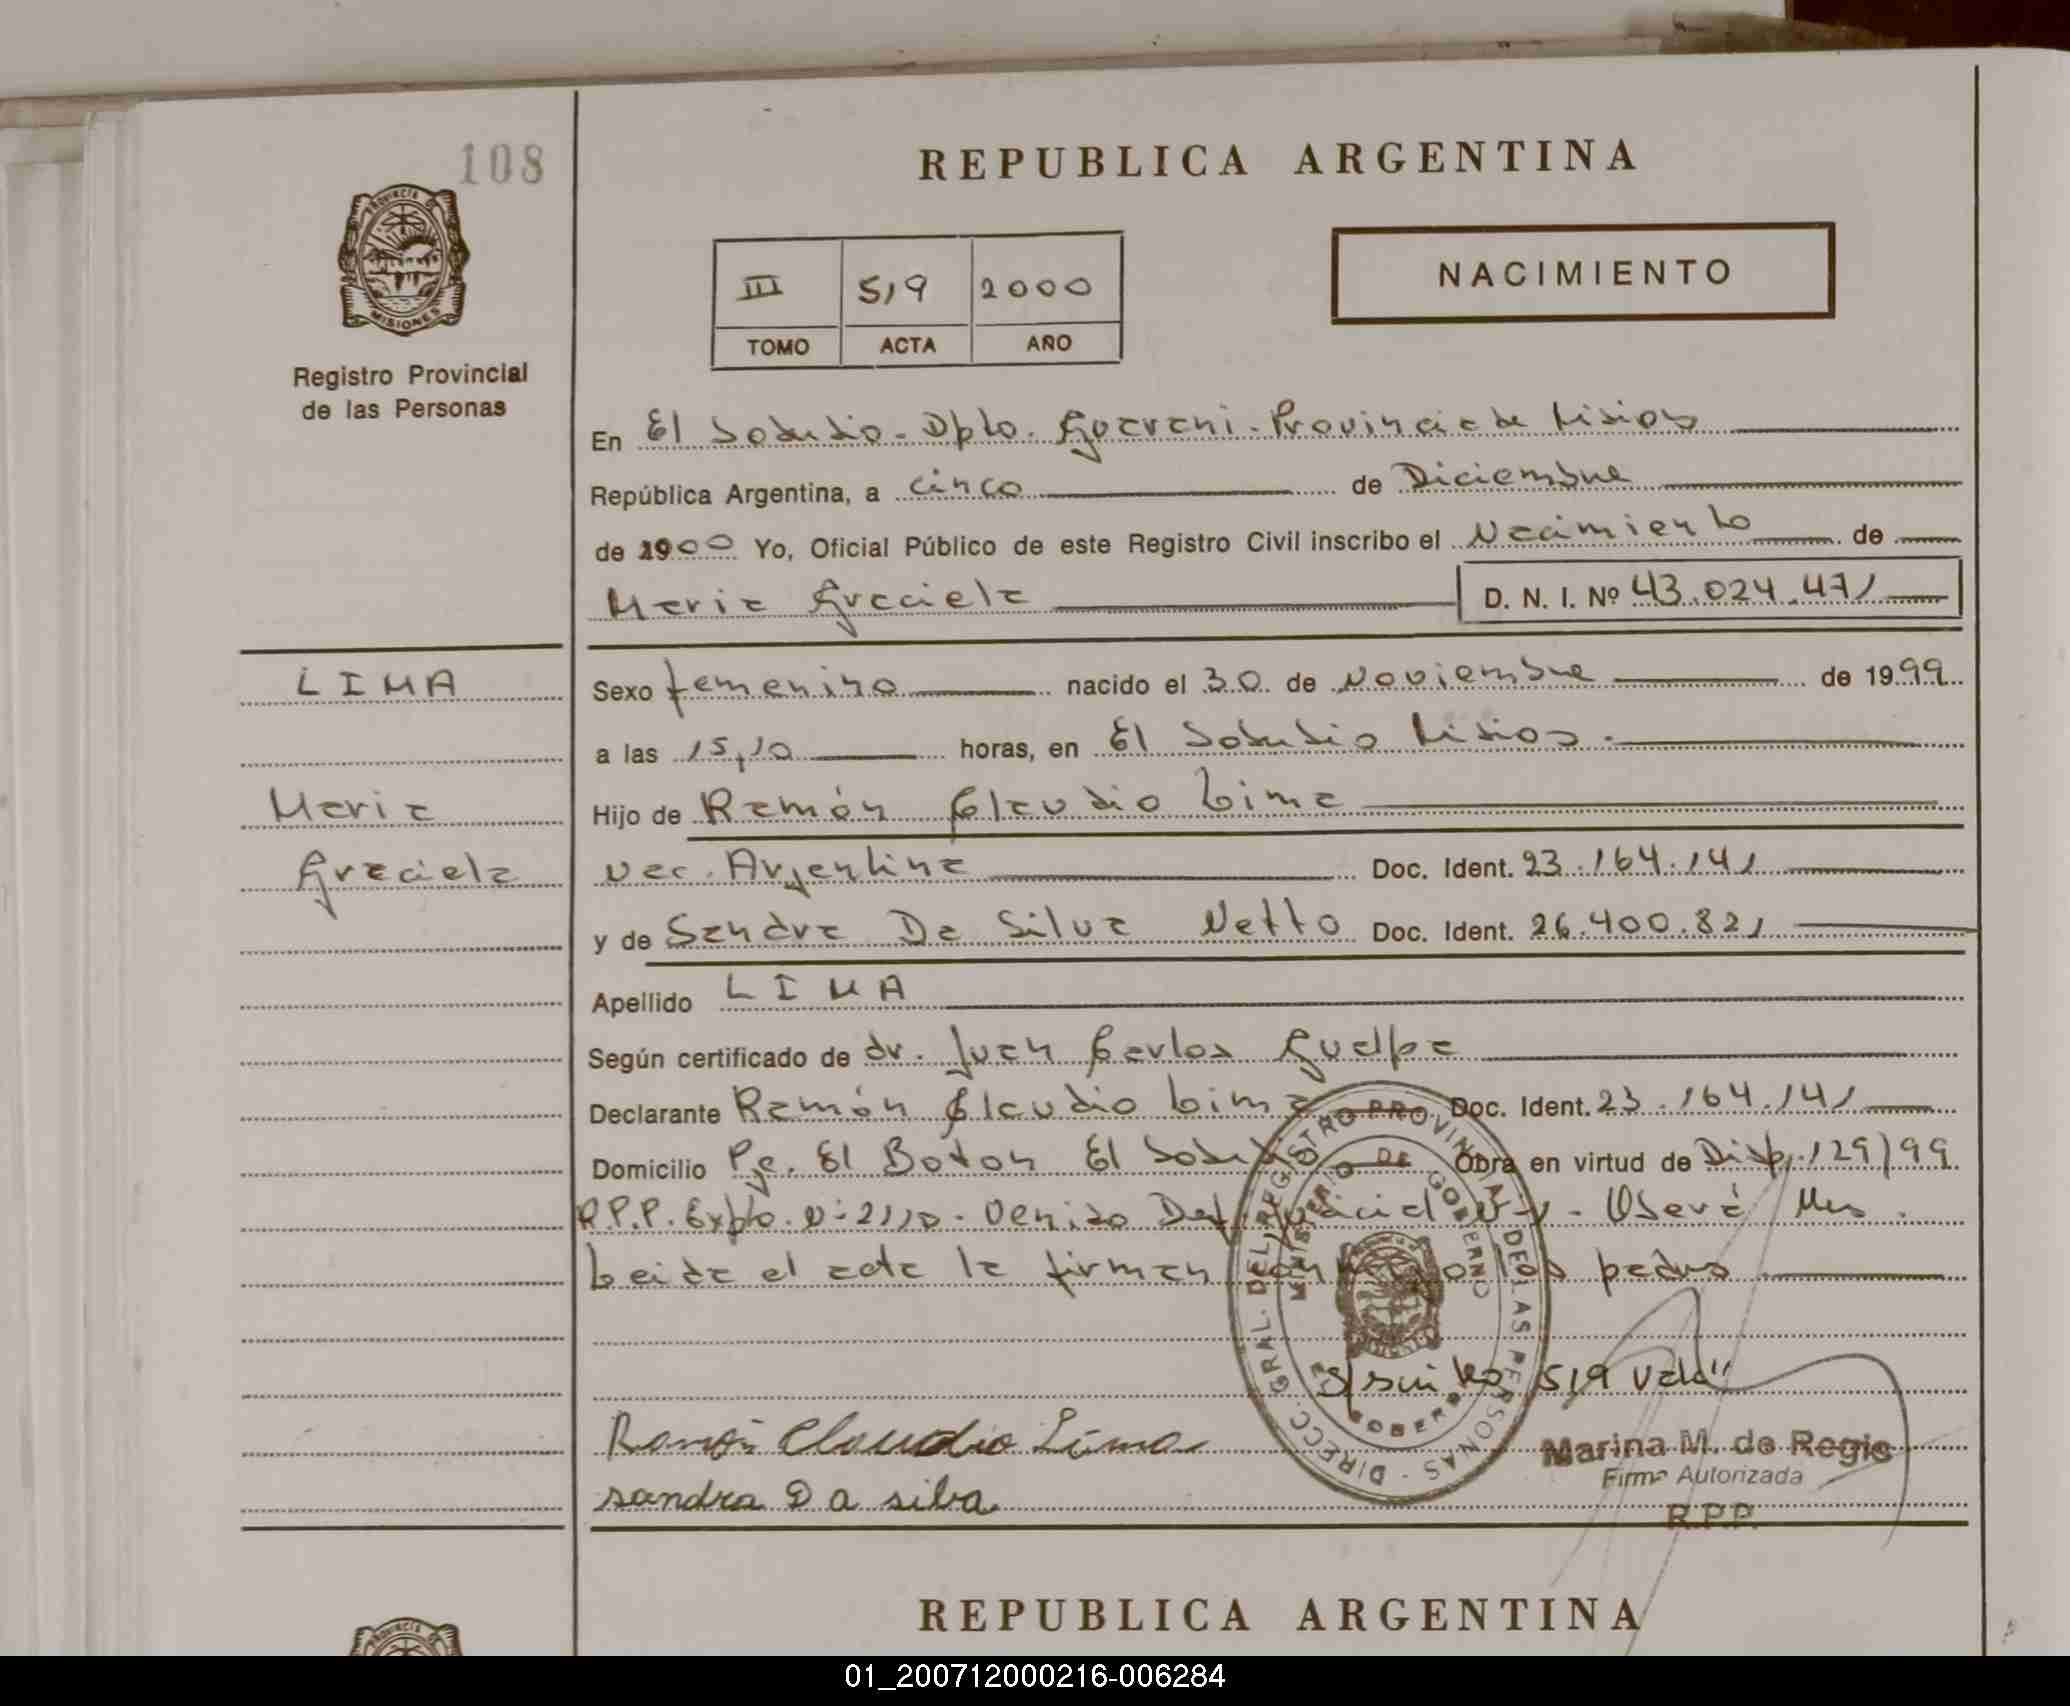 108
PROVINCIA DE
MISIONES
Registro Provincial
de las Personas
REPUBLICA ARGENTINA
III 519 2000
TOMO ACTA AÑO
NACIMIENTO
En El Soberbio - Dpto. Guarani - Provincia de Misiones
República Argentina, a cinco de Diciembre
de 1900 Yo, Oficial Público de este Registro Civil inscribo el Nacimiento de
Maria Graciela D. N. I. Nº 43.024.471
LIMA
Sexo femenino nacido el 30 de Noviembre de 1999
a las 15,10 horas, en El Soberbio Misiones.
Maria
Hijo de Ramón Claudio Lima
Graciela
nac. Argentina Doc. Ident. 23.164.141
y de Sandra Da Silva Netto Doc. Ident. 26.400.821
Apellido LIMA
Según certificado de dr. Juan Carlos Guelpa
Declarante Ramón Claudio Lima Doc. Ident. 23.164.141
Domicilio Pje. El Boton El Soberbio Obra en virtud de Disp. 129/99
R.P.P. Expto. Nº 2110 - Venido Def. Judicial Nº 1 - Oberá Mns.
Leida el acta la firman los padres
519 vale"
DIRECC. GRAL. DEL REGISTRO PROVINCIAL DE LAS PERSONAS
MINISTERIO DE GOBIERNO
Ramón Claudio Lima
Marina M. de Regis
Firma Autorizada
sandra Da silva
R.P.P.
REPUBLICA ARGENTINA
01_200712000216-006284